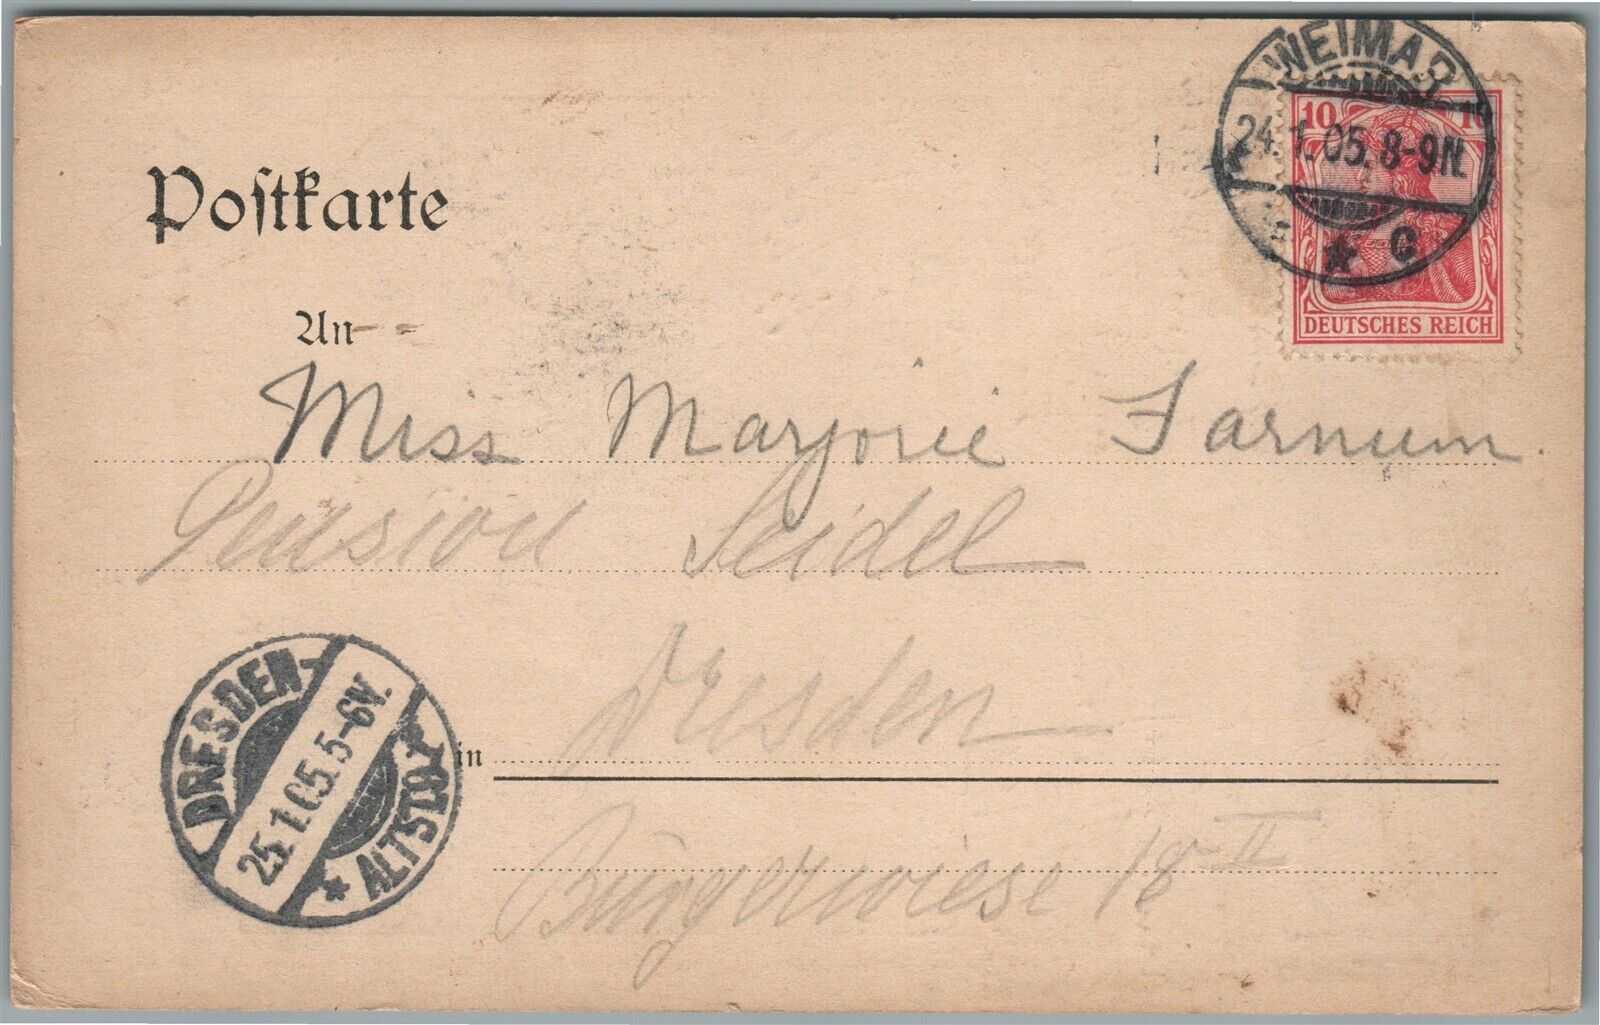 Postkarte
WEIMAR
24.1.05.8-9N.
* C
10 10
DEUTSCHES REICH
An
Miss Marjorie Farnum.
Pension Seidel
DRESDEN-
25.1.05.5-6V.
* ALTST.
in Dresden
Bürgerwiese 18 II